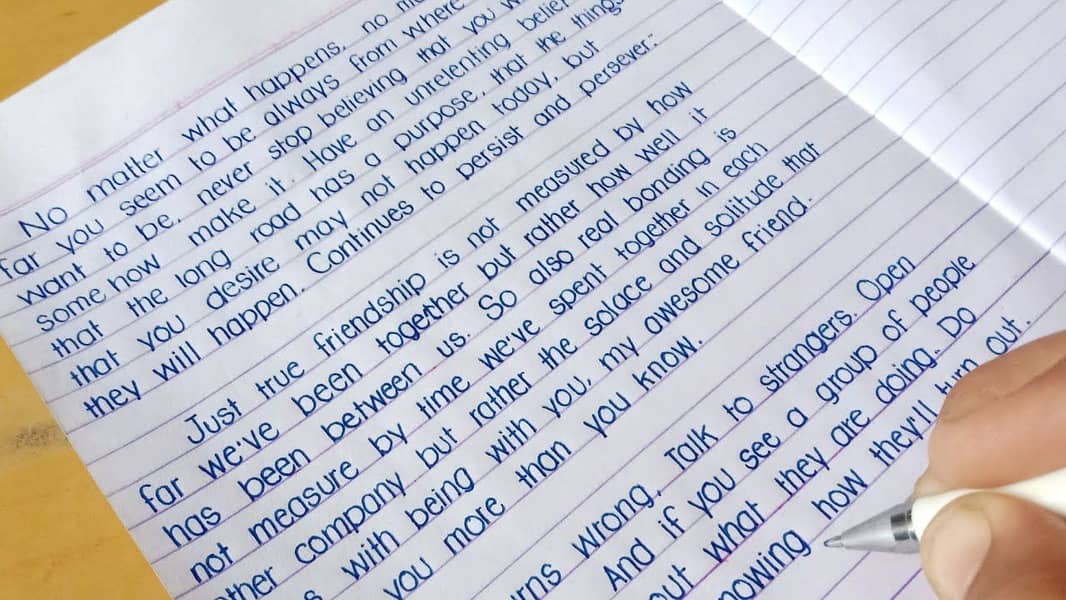 No matter what happens, no
far you seem to be always from where
want to be, never stop believing that you
some how make it. Have an unrelenting belief
that the long road has a purpose, that the things
that you desire may not happen today, but
they will happen. Continues to persist and persever.
Just true friendship is not measured by how
far we've been together but rather how well it
has been between us. So also real bonding is
not measure by time we've spent together In each
other company but rather the solace and solitude that
with being with you, my awesome friend.
you more than you know.
wrong. Talk to strangers. Open
And if you see a group of people
out what they are doing. Do
how they'll turn out.